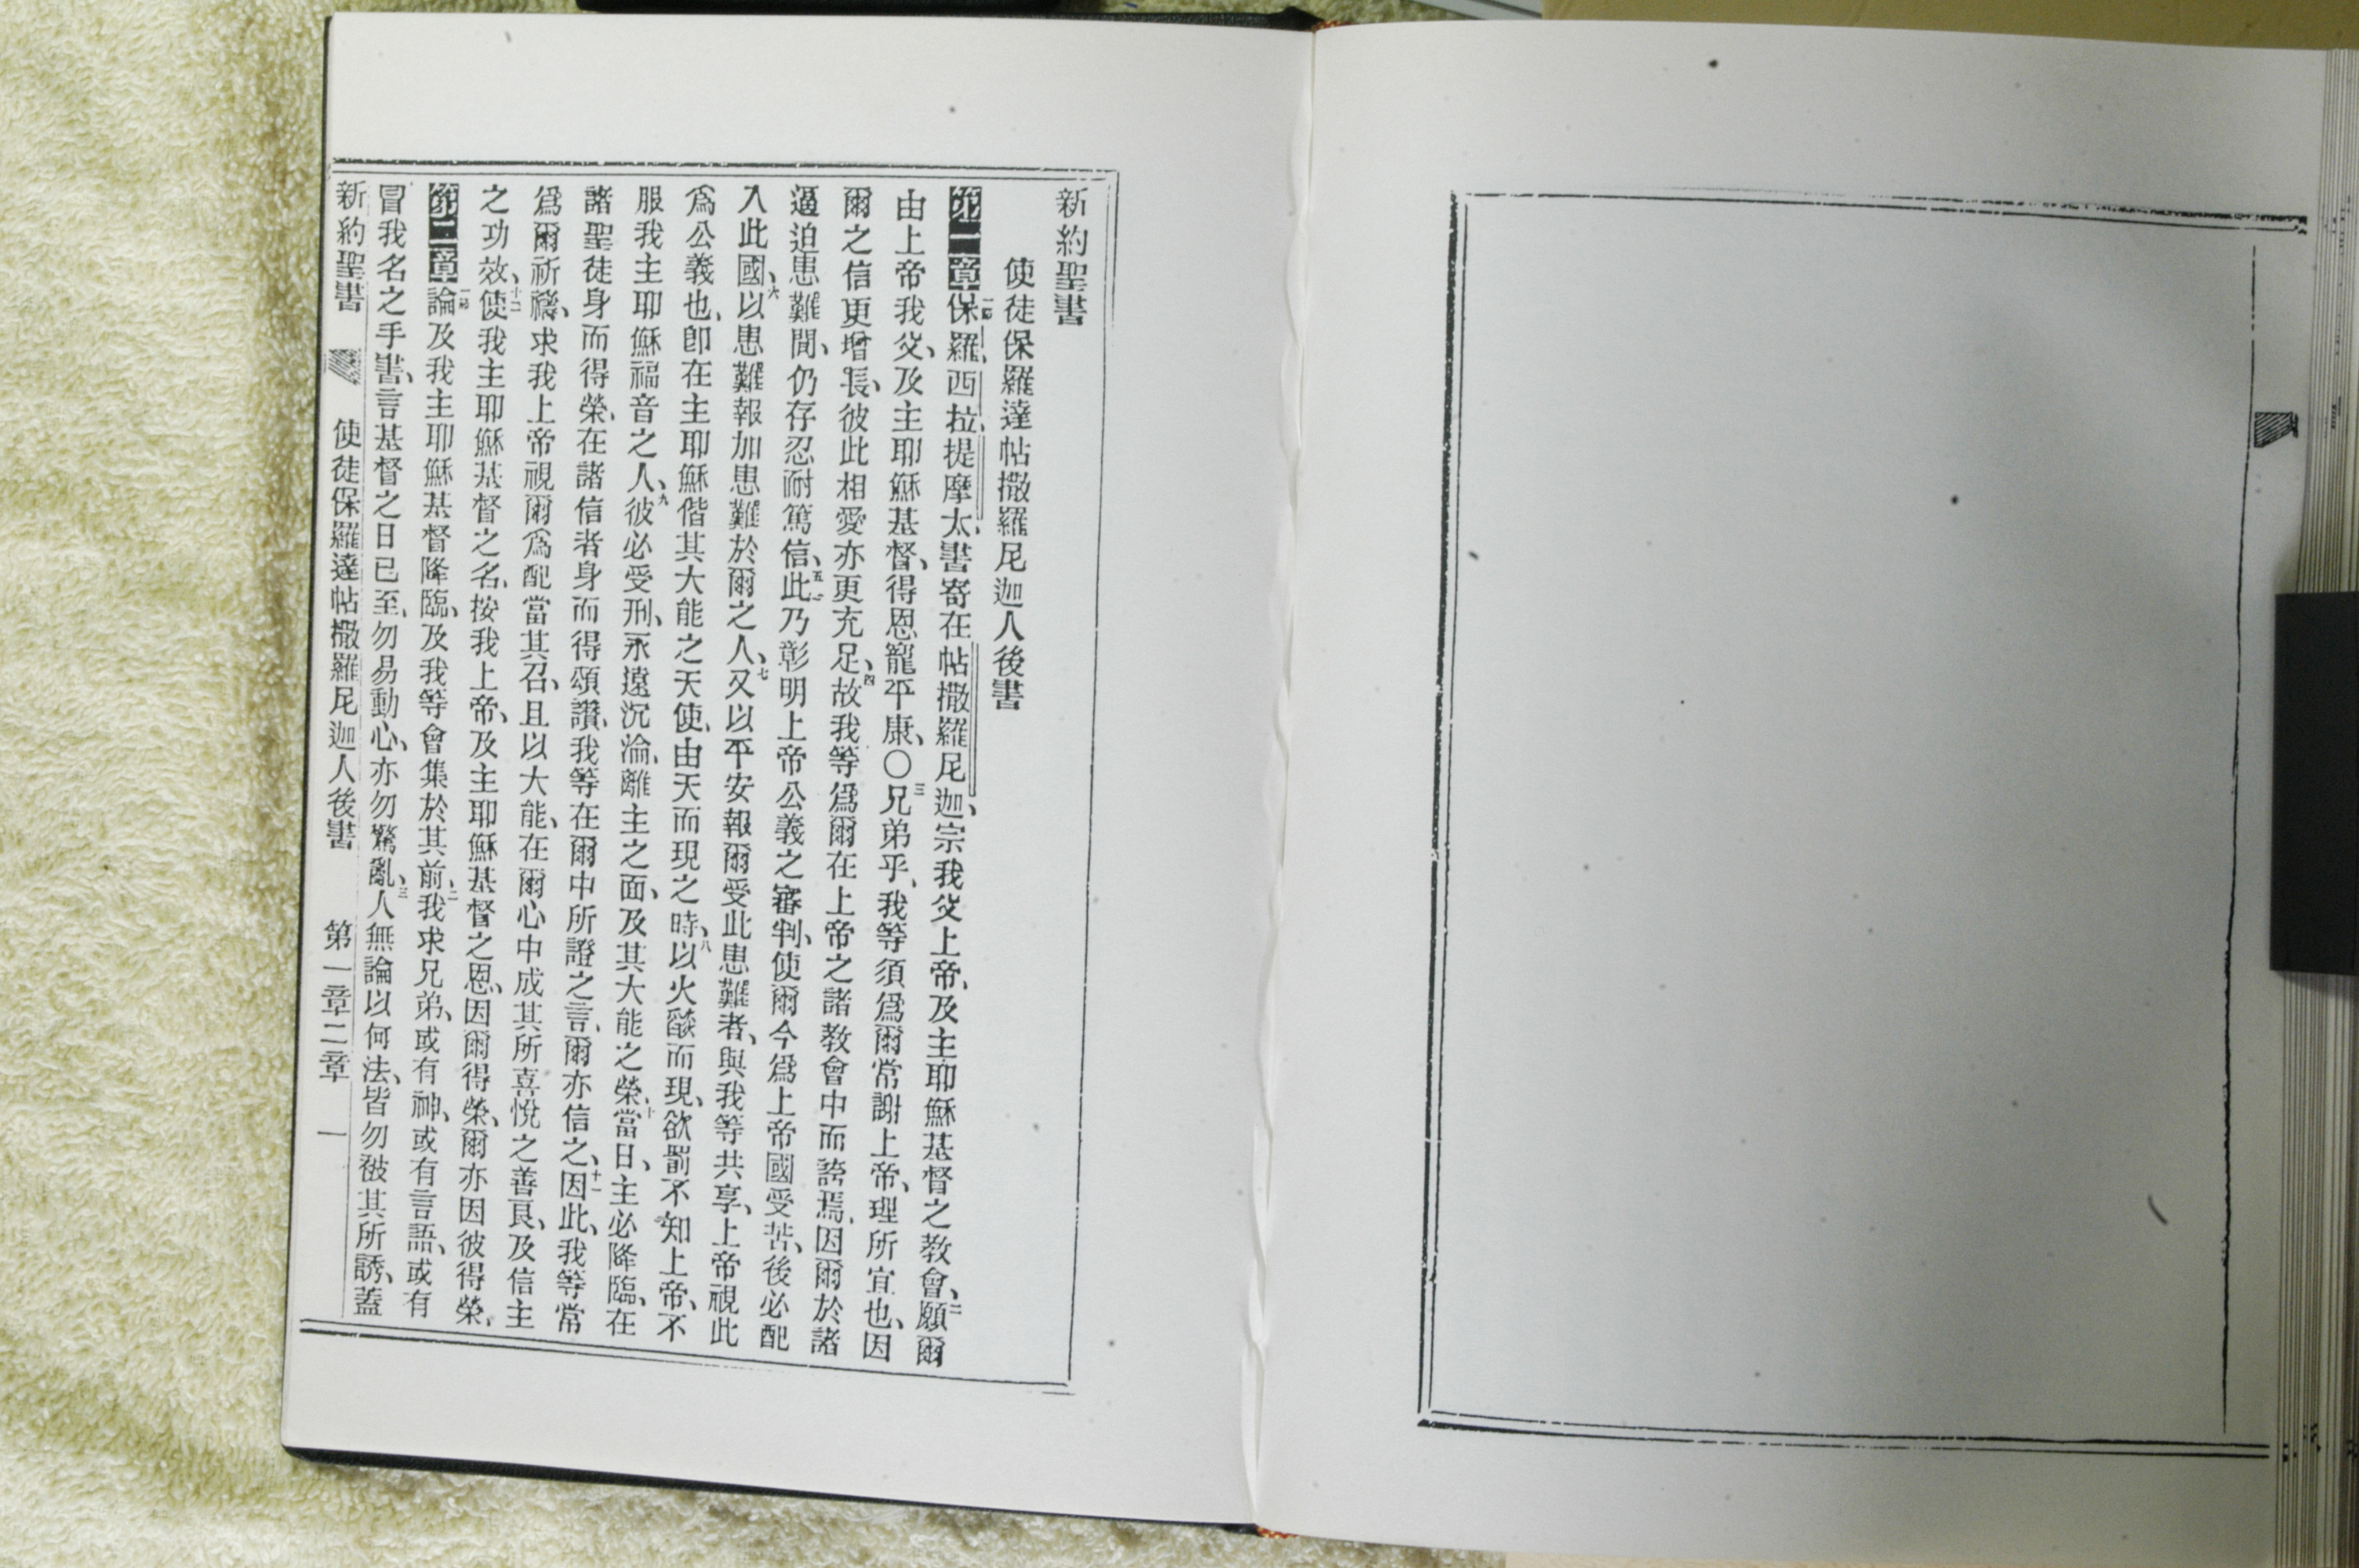 新約聖書
使徒保羅達帖撒羅尼迦人後書
第一章一節保羅、西拉、提摩太、書寄在帖撒羅尼迦、宗我父上帝、及主耶穌基督之教會、二願爾
由上帝我父、及主耶穌基督、得恩寵平康、〇三兄弟乎、我等須爲爾常謝上帝、理所宜也、因
爾之信更增長、彼此相愛亦更充足、四故我等爲爾在上帝之諸教會中而誇焉、因爾於諸
逼迫患難間、仍存忍耐篤信、五此乃彰明上帝公義之審判、使爾今爲上帝國受苦、後必配
入此國、六以患難報加患難於爾之人、七又以平安報爾受此患難者、與我等共享、上帝視此
爲公義也、卽在主耶穌偕其大能之天使、由天而現之時、八以火燄而現、欲罰不知上帝、不
服我主耶穌福音之人、九彼必受刑、永遠沉淪、離主之面、及其大能之榮、十當日、主必降臨、在
諸聖徒身而得榮、在諸信者身而得頌讚、我等在爾中所證之言、爾亦信之、十一因此、我等常
爲爾祈禱、求我上帝視爾爲配當其召、且以大能、在爾心中成其所喜悅之善良、及信主
之功效、十二使我主耶穌基督之名、按我上帝、及主耶穌基督之恩、因爾得榮、爾亦因彼得榮、
第二章一節論及我主耶穌基督降臨、及我等會集於其前、二我求兄弟、或有神、或有言語、或有
冒我名之手書、言基督之日已至、勿易動心、亦勿驚亂、三人無論以何法、皆勿被其所誘、蓋
新約聖書 使徒保羅達帖撒羅尼迦人後書 第一章二章 一